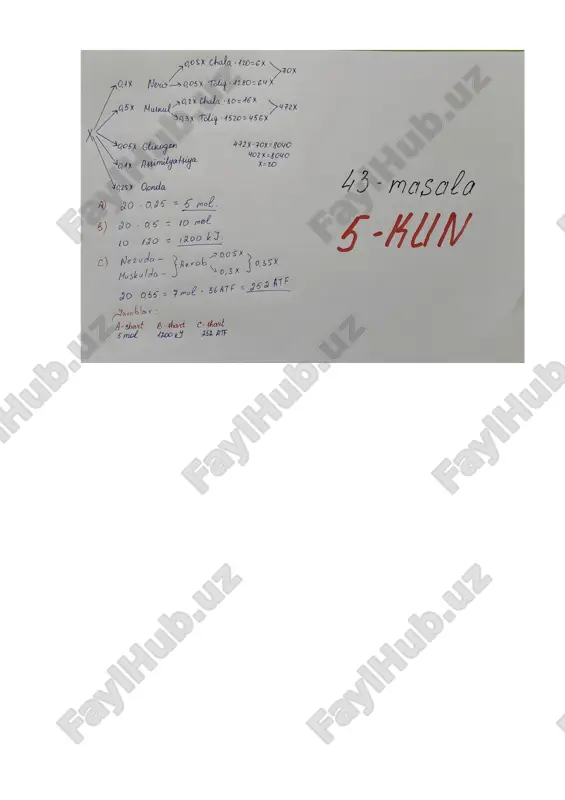 0,05x Chala · 120 = 6x
0,1x Nerv 70x
0,05x To'liq · 1280 = 64x
0,5x Muskul 0,2x Chala · 80 = 16x 472x
0,3x To'liq · 1520 = 456x
X
0,05x Glikogen 472x-70x=8040
0,1x Assimilyatsiya 402x=8040
x=20
0,25x Qonda
A) 20 · 0,25 = 5 mol.
B) 20 · 0,5 = 10 mol
10 · 120 = 1200 kJ.
C) Nervda - Aerob 0,05x 0,35x
Muskulda - 0,3x
20 · 0,35 = 7 mol · 36 ATF = 252 ATF
Javoblar:
A-shart B-shart C-shart
5 mol 1200 kJ 252 ATF
43-masala
5-KUN
FaylHub.uz
FaylHub.uz
FaylHub.uz
FaylHub.uz
FaylHub.uz
FaylHub.uz
FaylHub.uz